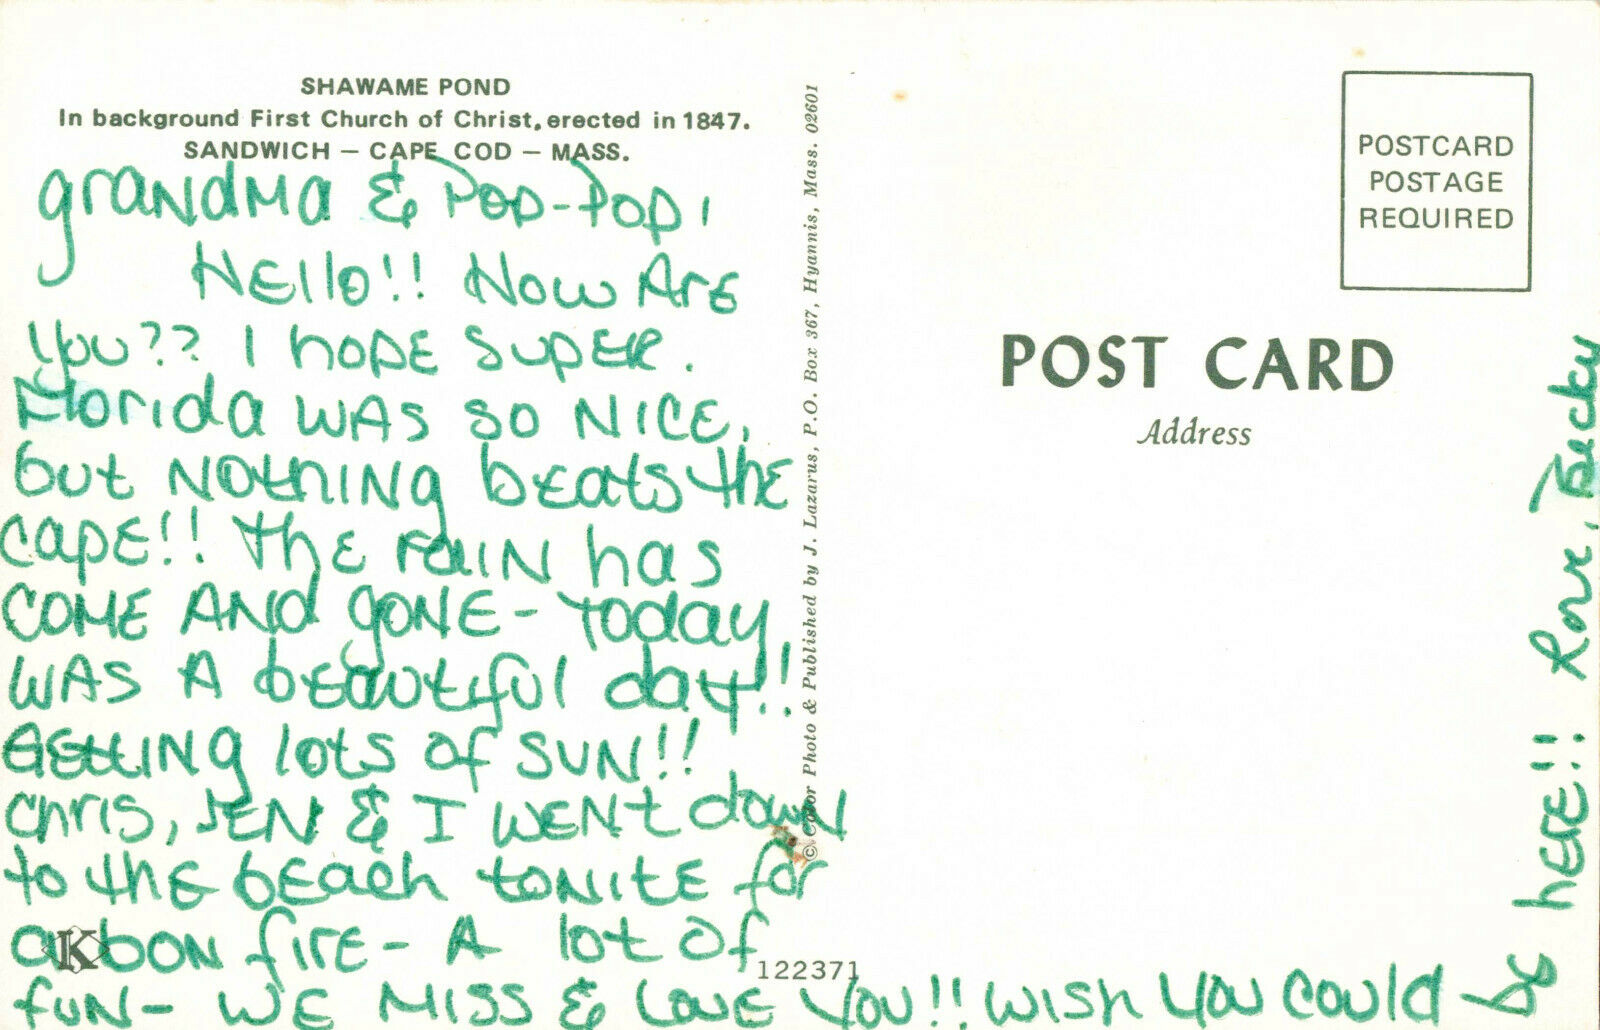 SHAWAME POND
In background First Church of Christ, erected in 1847.
SANDWICH — CAPE COD — MASS.
grandma & Pop-Pop,
Hello!! How Are
you?? I hope super.
Florida was so nice,
but nothing beats the
cape!! The rain has
come and gone - today
was a beautiful day!!
Getting lots of sun!!
Chris, Jen & I went down
to the beach tonite for
a bon fire - A lot of
fun - We miss & love you!! Wish you could
be here!! Love, Becky
K
122371
© Color Photo & Published by J. Lazarus, P.O. Box 367, Hyannis, Mass. 02601
POSTCARD
POSTAGE
REQUIRED
POST CARD
Address